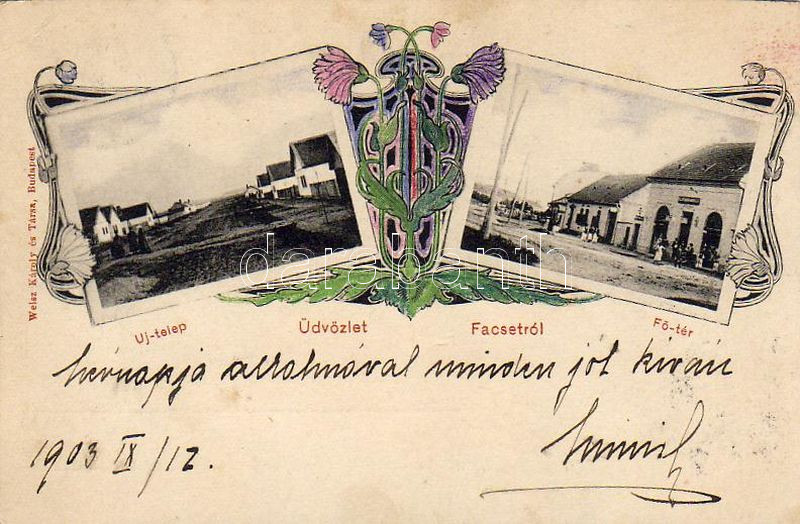 Weisz Károly és Társa, Budapest
darabanth
Uj-telep
Üdvözlet Facsetról
Fő-tér
névnapja alkalmával minden jót kíván
1903 IX/12.